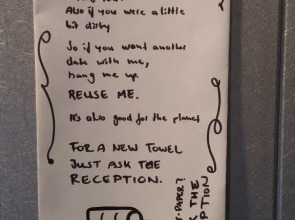 Also if you were a little
bit dirty
So if you want another
date with me,
hang me up.
REUSE ME.
It's also good for the planet
FOR A NEW TOWEL
JUST ASK THE
RECEPTION.
PAPER?
THE